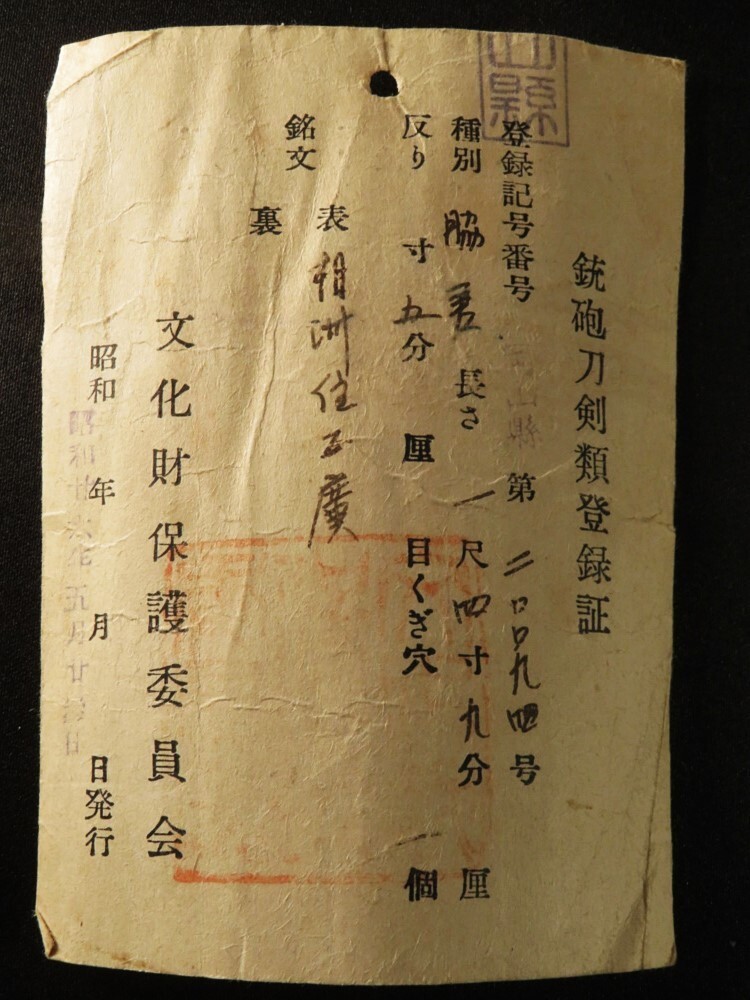 山縣
銃砲刀剣類登録証
登録記号番号 山縣 第二〇〇九四号
種別 脇差 長さ 一尺四寸九分 厘
反り 寸五分 厘 目くぎ穴 一個
銘文 表 相州住正廣
裏
文化財保護委員会
昭和 年 月 日発行
昭和廿六年五月廿 日